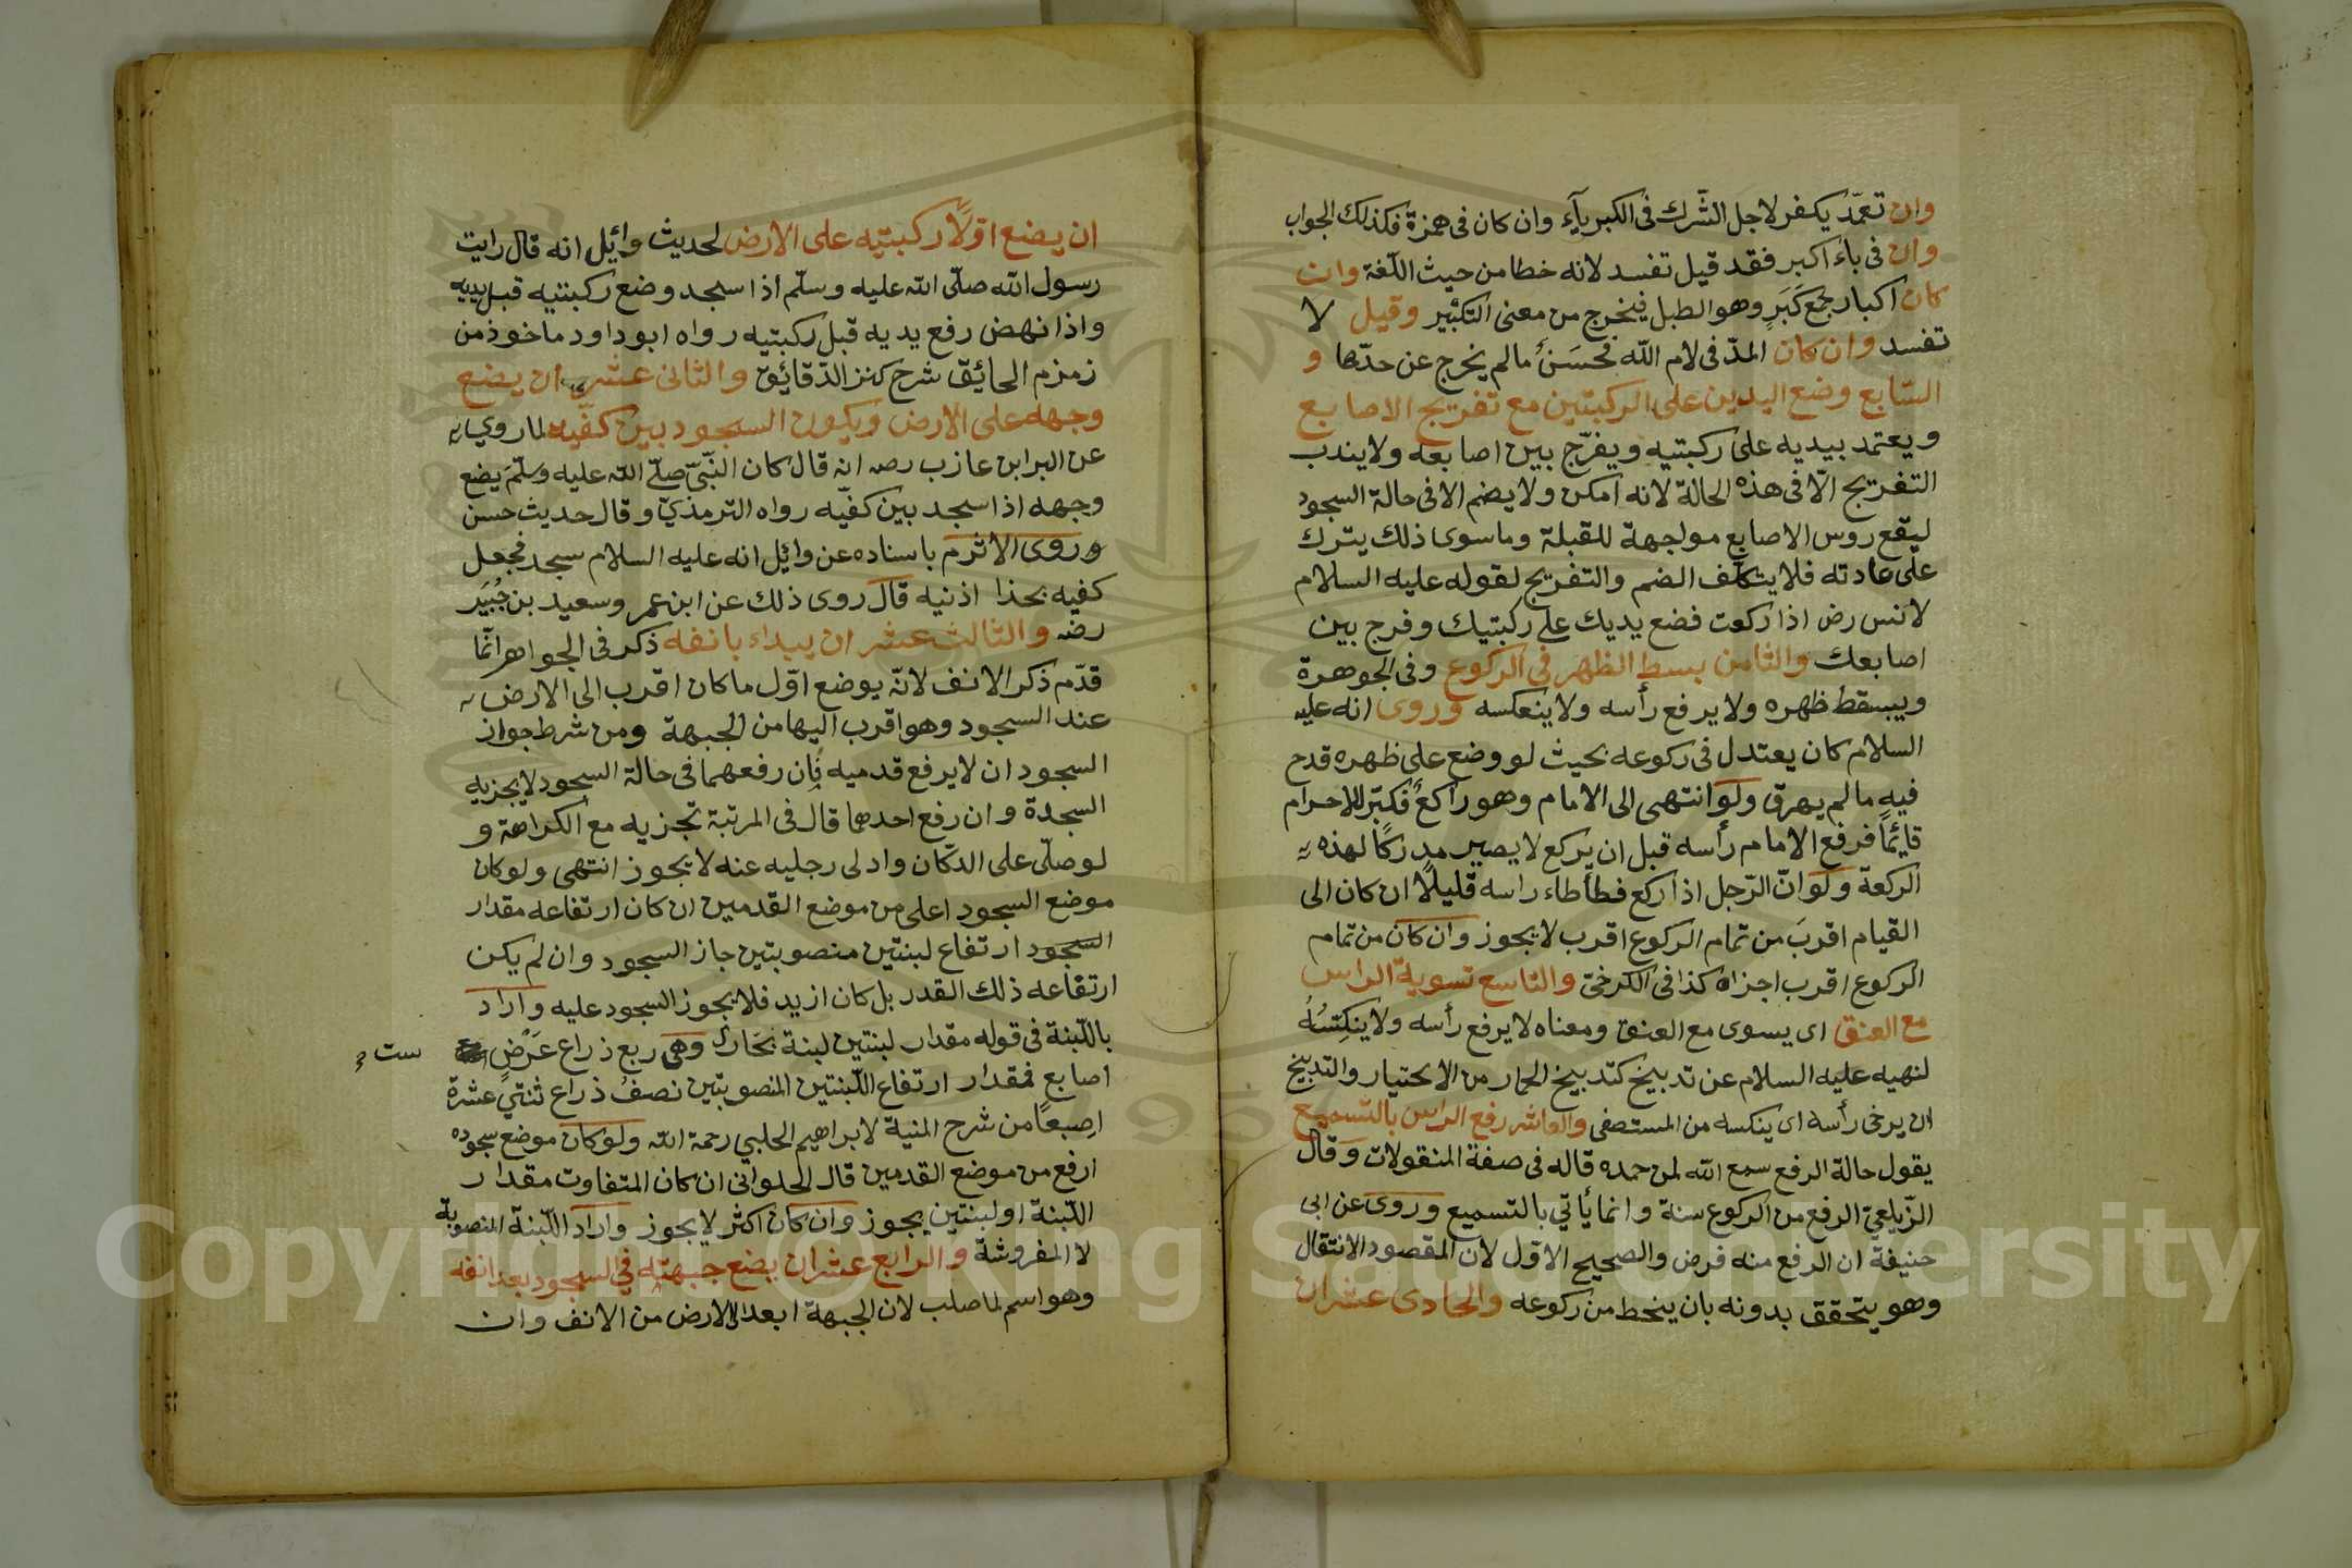 وان تعمّد يكفر لاجل الشّرك فى الكبريآء وان كان فى همزة فكذلك الجواب
وان فى باء اكبر فقد قيل تفسد لانه خطا من حيث اللّغة وان
كان اكبار جمع كَبَرٍ وهو الطبل فيخرج من معنى التكبير وقيل لا
تفسد وان كان المدّ فى لام الله فحسَنٌ ما لم يخرج عن حدّها و
السّابع وضع اليدين على الركبتين مع تفريج الاصابع
ويعتمد بيديه على ركبتيه ويفرّج بين اصابعه ولا يندب
التفريج الّا فى هذه الحالة لانه امكن ولا يضم الا فى حالة السجود
ليقع روس الاصابع مواجهة للقبلة وما سوى ذلك يترك
على عادته فلا يتكلّف الضم والتفريج لقوله عليه السلام
لانس رض اذا ركعت فضع يديك على ركبتيك وفرج بين
اصابعك والثامن بسط الظهر فى الركوع وفى الجوهرة
ويبسقط ظهره ولا يرفع رأسه ولا ينعكسه وروى انه عليه
السلام كان يعتدل فى ركوعه بحيث لو وضع على ظهره قدح
فيه ما لم يهرق ولو انتهى الى الامام وهو راكعٌ فكبّر للاحرام
قائمًا فرفع الامام رأسه قبل ان يركع لا يصير مدركًا لهذه
الركعة ولو انّ الرّجل اذا ركع فطأطاء راسه قليلًا ان كان الى
القيام اقربَ من تمام الركوع اقرب لا يجوز وان كان من تمام
الركوع اقرب اجزاه كذا فى الكرخىّ والتاسع تسوية الراس
مع العنق اى يسوى مع العنق ومعناه لا يرفع رأسه ولا ينكِسُهُ
لنهيه عليه السلام عن تدبيخ كتدبيخ الحمار من الاختيار والتدبيخ
ان يرخى رأسه اى ينكسه من المستصفى والعاشر رفع الراس بالتسميع
يقول حالة الرفع سمع الله لمن حمده قاله فى صفة المنقولات وقال
الزّيلعىّ الرفع من الركوع سنة وانما يأتي بالتسميع وروى عن ابى
حنيفة ان الرفع منه فرض والصحيح الاوّل لان المقصود الانتقال
وهو يتحقق بدونه بان ينحط من ركوعه والحادى عشر ان
ان يضع اوّلًا ركبتيه على الارض لحديث وائيل انه قال رايت
رسول الله صلّى الله عليه وسلّم اذا سجد وضع ركبتيه قبل يديه
واذا نهض رفع يديه قبل ركبتيه رواه ابو داود ماخوذ من
زمزم الحائيق شرح كنز الدّقائيق والثانى عشر ان يضع
وجهه على الارض ويكون السجود بين كفّيه لما روي
عن البرابن عازب رضه انه قال كان النّبىّ صلّى الله عليه وسلّم يضع
وجهه اذا سجد بين كفّيه رواه الترمذيّ وقال حديث حسن
وروى الاثرم باسناده عن وائيل انه عليه السلام سجد فجعل
كفيه بحذا اذنيه قال روى ذلك عن ابن عمر وسعيد بن جُبَيَر
رضه والثالث عشر ان يبداء بانفه ذكر فى الجواهر انّما
قدّم ذكر الانف لانّه يوضع اوّل ما كان اقرب الى الارض
عند السجود وهو اقرب اليها من الجبهة ومن شرط جواز
السجود ان لا يرفع قدميه فان رفعهما فى حالة السجود لا يجزيه
السجدة وان رفع احدهما قال فى المرتبة تجزيه مع الكراهة و
لو صلّى على الدكّان وادلى رجليه عنه لا يجوز انتهى ولو كان
موضع السجود اعلى من موضع القدمين ان كان ارتفاعه مقدار
السجود ارتفاع لبنتين منصوبتين جاز السجود وان لم يكن
ارتفاعه ذلك القدر بل كان ازيد فلا يجوز السجود عليه واراد
باللّبنة فى قوله مقدار لبنتين لبنة بخارا وهى ربع ذراع عَرْضٍ
ست
اصابع فمقدار ارتفاع اللّبنتين المنصوبتين نصفُ ذراع ثنتي عشرة
اصِبعًا من شرح المنية لابراهيم الحلبي رحمة الله ولو كان موضع سجوده
ارفع من موضع القدمين قال الحلوانى ان كان المتفاوت مقدار
اللّبنة او لبنتين يجوز وان كان اكثر لا يجوز واراد اللّبنة المنصوبة
لا المفروشة والرابع عشر ان يضع جبهته في السجود بعد انفه
وهو اسم لما صلب لان الجبهة ابعد الى الارض من الانف وان
Copyright © King Saud University